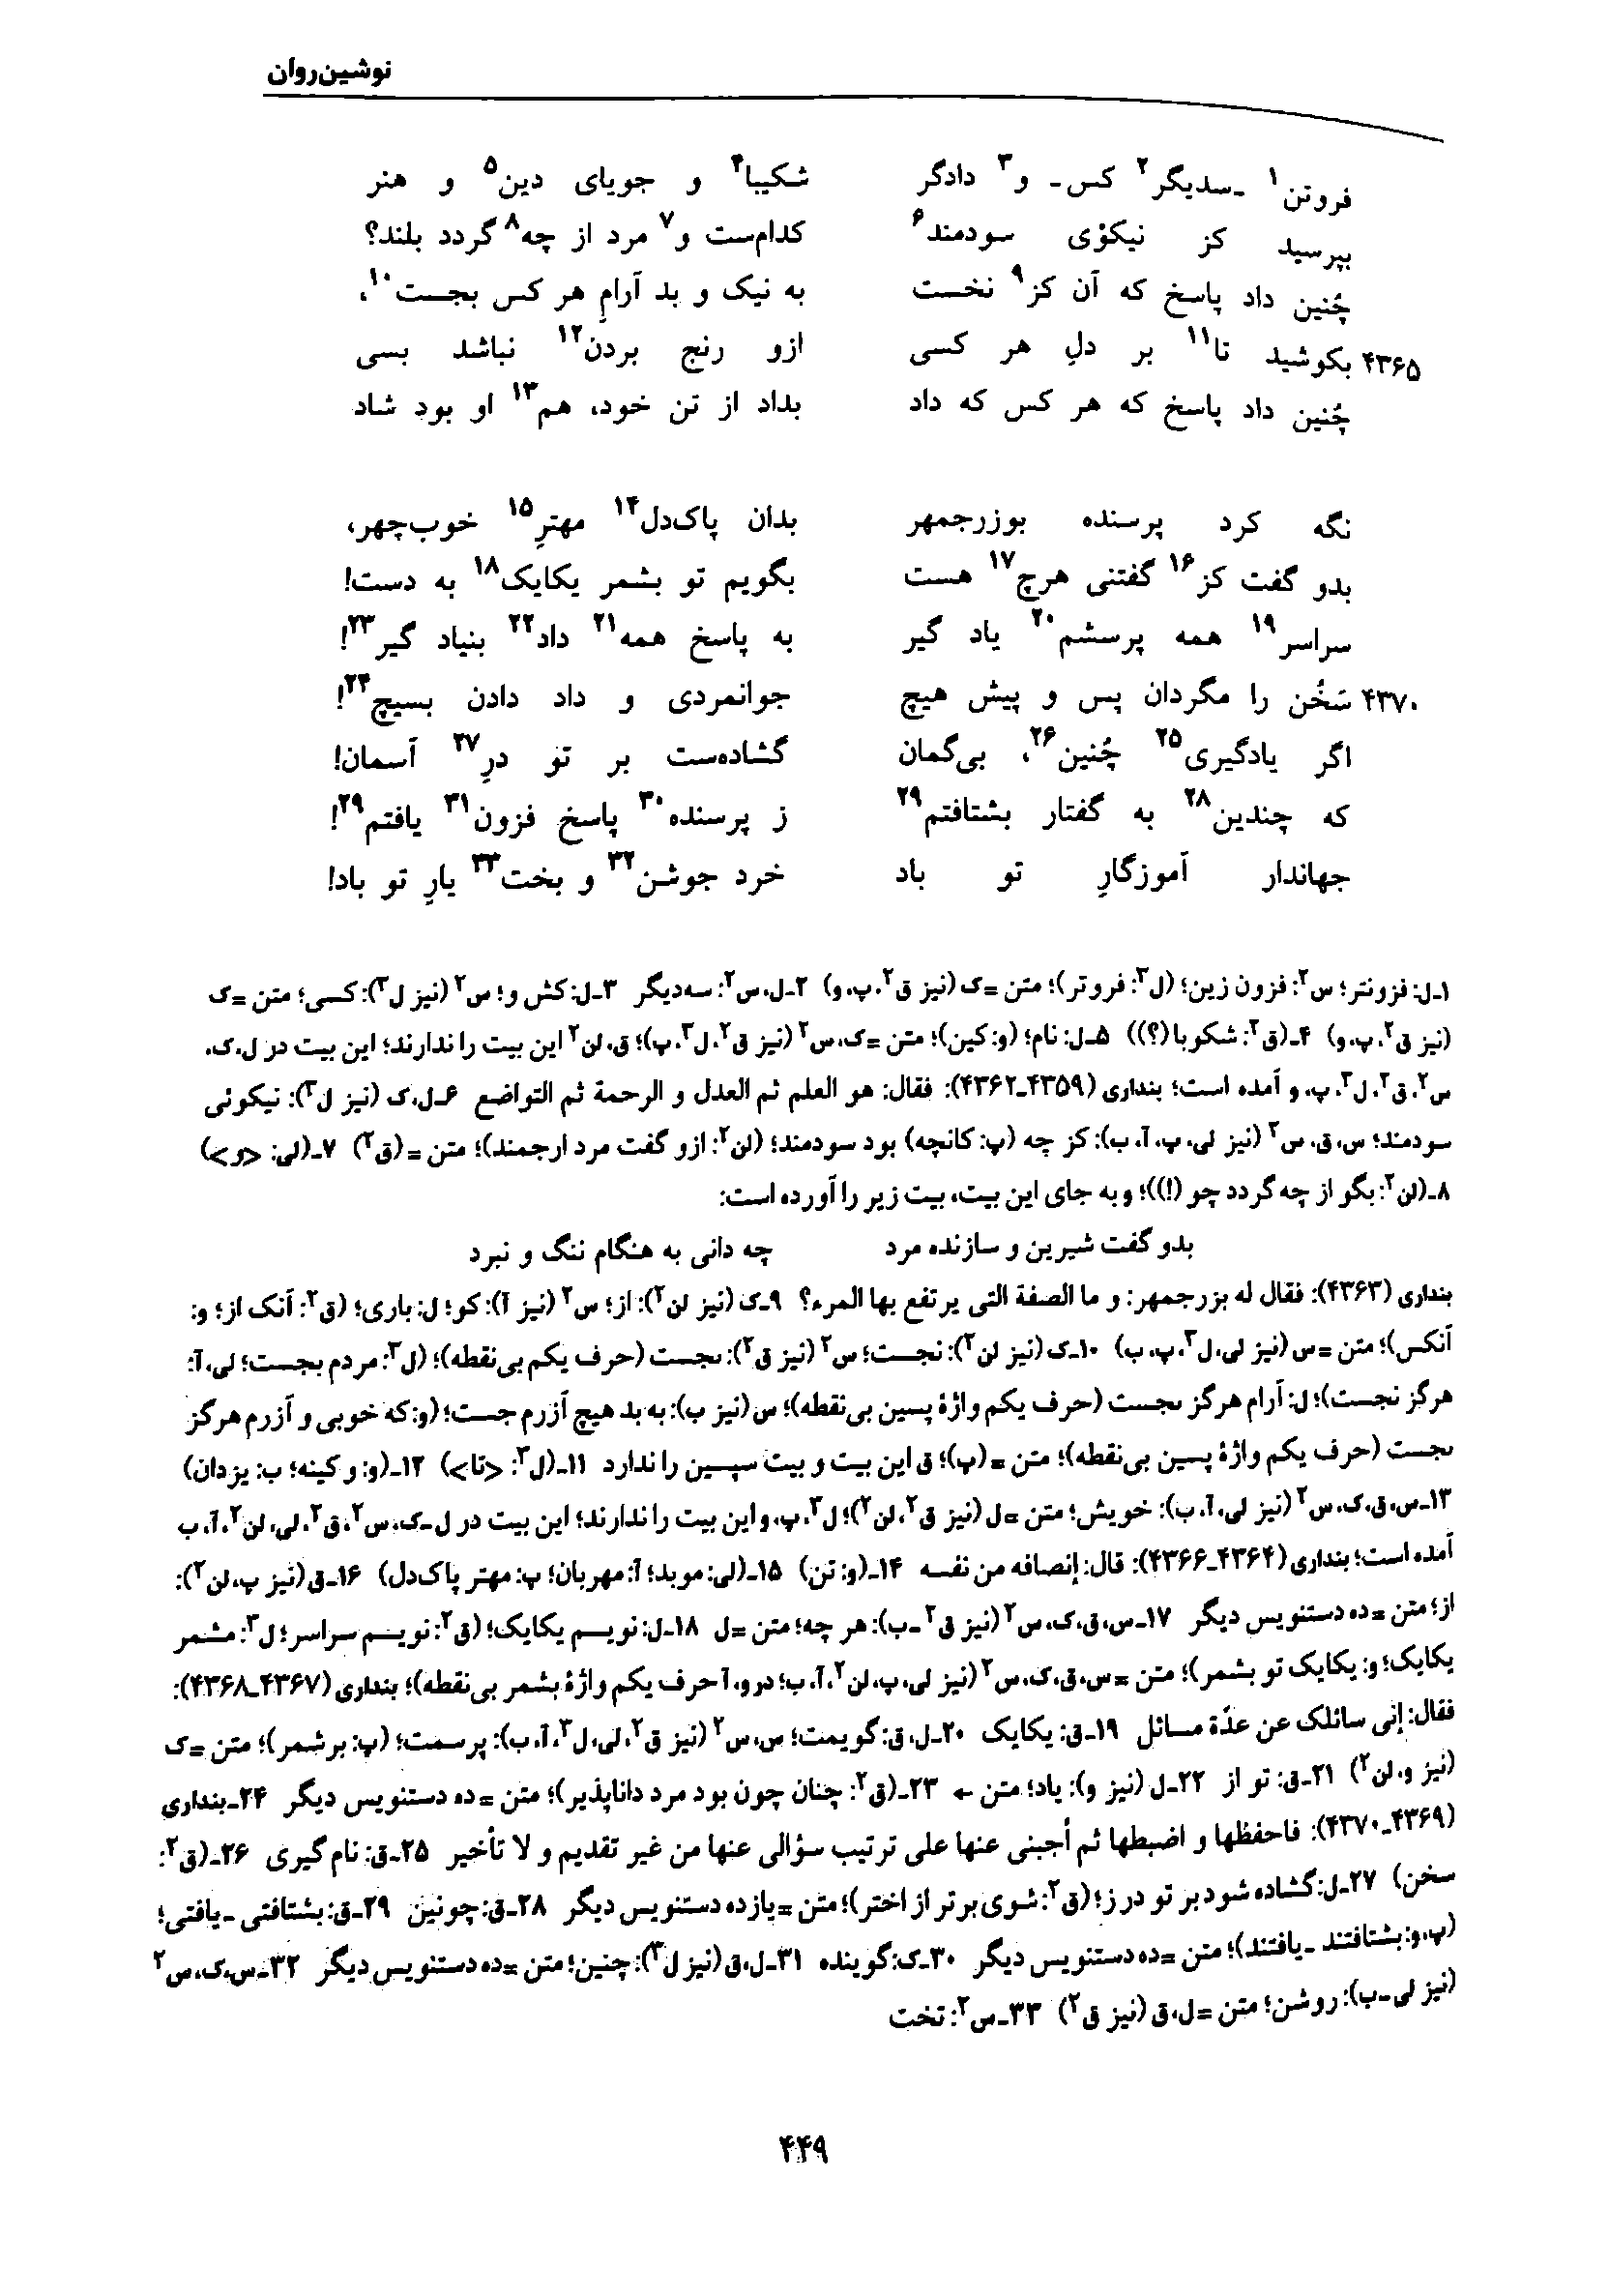 نوشین‌روان
فروتن۱ ـ سدیگر۲ کس ـ و۳ دادگر شکیبا۴ و جویای دین۵ و هنر
بپرسید کز نیکوی سودمند۶ کدام‌ست و۷ مرد از چه۸ گردد بلند؟
چُنین داد پاسخ که آن کز۹ نخست به نیک و بد آرامِ هر کس بجست۱۰،
۴۳۶۵ بکوشید تا۱۱ بر دلِ هر کسی ازو رنج بردن۱۲ نباشد بسی
چُنین داد پاسخ که هر کس که داد بداد از تن خود، هم۱۳ او بود شاد
نگه کرد پرسنده بوزرجمهر بدان پاک‌دل۱۴ مهترِ۱۵ خوب‌چهر،
بدو گفت کز۱۶ گفتنی هرچ۱۷ هست بگویم تو بشمر یکایک۱۸ به دست!
سراسر۱۹ همه پرسشم۲۰ یاد گیر به پاسخ همه۲۱ داد۲۲ بنیاد گیر۲۳!
۴۳۷۰ سَخُن را مگردان پس و پیش هیچ جوانمردی و داد دادن بسیچ۲۴!
اگر یادگیری۲۵ چُنین۲۶، بی‌گمان گشاده‌ست بر تو درِ۲۷ آسمان!
که چندین۲۸ به گفتار بشتافتم۲۹ ز پرسنده۳۰ پاسخ فزون۳۱ یافتم۲۹!
جهاندار آموزگارِ تو باد خرد جوشن۳۲ و بخت۳۳ یارِ تو باد!
۱ـ ل: فزونتر؛ س۲: فزون زین؛ (ل۳: فروتر)؛ متن = ک (نیز ق۲، پ، و) ۲ـ ل، س۲: سه‌دیگر ۳ـ ل: کش و؛ س۲ (نیز ل۳): کسی؛ متن = ک
(نیز ق۲، پ، و) ۴ـ (ق۲: شکوبا (؟)) ۵ـ ل: نام؛ (و: کین)؛ متن = ک، س۲ (نیز ق۲، ل۳، پ)؛ ق، لن۲ این بیت را ندارند؛ این بیت در ل، ک،
س۲، ق۲، ل۳، پ، و آمده است؛ بنداری (۴۳۵۹ـ۴۳۶۲): فقال: هو العلم ثم العدل و الرحمة ثم التواضع ۶ـ ل، ک (نیز ل۳): نیکوئی
سودمند؛ س، ق، س۲ (نیز لی، پ، آ، ب): کز چه (پ: کانچه) بود سودمند؛ (لن۲: ازو گفت مرد ارجمند)؛ متن = (ق۲) ۷ـ (لی: <و>)
۸ـ (لن۲: بگو از چه گردد چو (!))؛ و به جای این بیت، بیت زیر را آورده است:
بدو گفت شیرین و سازنده مرد چه دانی به هنگام ننگ و نبرد
بنداری (۴۳۶۳): فقال له بزرجمهر: و ما الصفة التی یرتفع بها المرء؟ ۹ـ ک (نیز لن۲): از؛ س۲ (نیز آ): کو؛ ل: باری؛ (ق۲: آنک از؛ و:
آنکس)؛ متن = س (نیز لی، ل۳، پ، ب) ۱۰ـ ک (نیز لن۲): نجست؛ س۲ (نیز ق۲): ٮجست (حرف یکم بی‌نقطه)؛ (ل۳: مردم بجست؛ لی، آ:
هرگز نجست)؛ ل: آرام هرگز ٮجست (حرف یکم واژهٔ پسین بی‌نقطه)؛ س (نیز ب): به بد هیچ آزرم جست؛ (و: که خوبی و آزرم هرگز
ٮجست (حرف یکم واژهٔ پسین بی‌نقطه)؛ متن = (پ)؛ ق این بیت و بیت سپسین را ندارد ۱۱ـ (ل۳: <تا>) ۱۲ـ (و: و کینه؛ ب: یزدان)
۱۳ـ س، ق، ک، س۲ (نیز لی، آ، ب): خویش؛ متن = ل (نیز ق۲، لن۲)؛ ل۳، پ، و این بیت را ندارند؛ این بیت در ل ـ ک، س۲، ق۲، لی، لن۲، آ، ب
آمده است؛ بنداری (۴۳۶۴ـ۴۳۶۶): قال: إنصافه من نفسه ۱۴ـ (و: تن) ۱۵ـ (لی: موبد؛ آ: مهربان؛ پ: مهتر پاک‌دل) ۱۶ـ ق (نیز پ، لن۲):
از؛ متن = ده دستنویس دیگر ۱۷ـ س، ق، ک، س۲ (نیز ق۲ ـ ب): هر چه؛ متن = ل ۱۸ـ ل: نویسم یکایک؛ (ق۲: نویسم سراسر؛ ل۳: مشمر
یکایک؛ و: یکایک تو بشمر)؛ متن = س، ق، ک، س۲ (نیز لی، پ، لن۲، آ، ب؛ در و، آ حرف یکم واژهٔ بشمر بی‌نقطه)؛ بنداری (۴۳۶۷ـ۴۳۶۸):
فقال: إنی سائلک عن عدّة مسائل ۱۹ـ ق: یکایک ۲۰ـ ل، ق: گویمت؛ س، س۲ (نیز ق۲، لی، ل۳، آ، ب): پرسمت؛ (پ: برشمر)؛ متن = ک
(نیز و، لن۲) ۲۱ـ ق: تو از ۲۲ـ ل (نیز و): یاد؛ متن ← ۲۳ـ (ق۲: چنان چون بود مرد داناپذیر)؛ متن = ده دستنویس دیگر ۲۴ـ بنداری
(۴۳۶۹ـ۴۳۷۰): فاحفظها و اضبطها ثم أجبنی عنها علی ترتیب سؤالی عنها من غیر تقدیم و لا تأخیر ۲۵ـ ق: نام گیری ۲۶ـ (ق۲:
سخن) ۲۷ـ ل: گشاده شود بر تو درز؛ (ق۲: شوی برتر از اختر)؛ متن = یازده دستنویس دیگر ۲۸ـ ق: چونین ۲۹ـ ق: بشتافتی ـ یافتی؛
(پ، و: بشتافتند ـ یافتند)؛ متن = ده دستنویس دیگر ۳۰ـ ک: گوینده ۳۱ـ ل، ق (نیز ل۳): چنین؛ متن = ده دستنویس دیگر ۳۲ـ س، ک، س۲
(نیز لی ـ ب): روشن؛ متن = ل، ق (نیز ق۲) ۳۳ـ س۲: تخت
۴۴۹